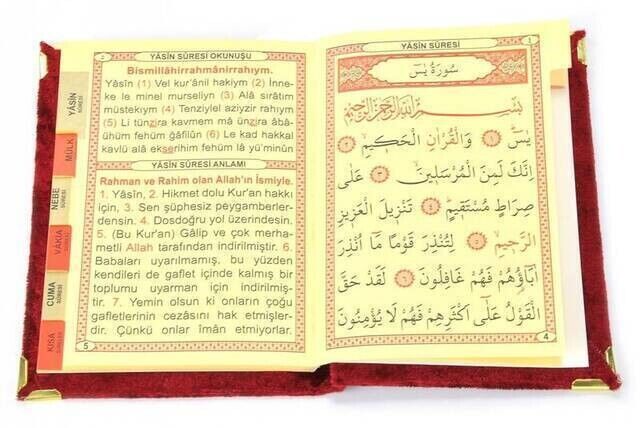 YÂSÎN SÛRESİ OKUNUŞU
Bismillâhirrahmânirrahıym.
Yâsîn (1) Vel kur'ânil hakiym (2) İnne-
ke le minel murseliyn (3) Alâ sırâtim
müstekıym (4) Tenziylel aziyzir rahıym
(5) Li tünzira kavmem mâ ünzira âbâ-
ühüm fehüm ğâfilûn (6) Le kad hakkal
kavlü alâ ekserihim fehüm lâ yü'minûn
YÂSÎN SÛRESİ ANLAMI
Rahman ve Rahim olan Allah'ın İsmiyle.
1. Yâsîn, 2. Hikmet dolu Kur'an hakkı
için, 3. Sen şüphesiz peygamberler-
densin. 4. Dosdoğru yol üzerindesin.
5. (Bu Kur'an) Gâlip ve çok merha-
metli Allah tarafından indirilmiştir. 6.
Babaları uyarılmamış, bu yüzden
kendileri de gaflet içinde kalmış bir
toplumu uyarman için indirilmiş-
tir. 7. Yemin olsun ki onların çoğu
gafletlerinin cezasını hak etmişler-
dir. Çünkü onlar îmân etmiyorlar.
5
YÂSÎN
SÛRESİ
MÜLK
NEBE
SÛRESİ
VÂKIA
SÛRESİ
CUMA
SÛRESİ
KISA
SÛRELER
YÂSÎN SÛRESİ
سُورَةُ يٰسٓ
بِسْمِ اللهِ الرَّحْمٰنِ الرَّحِيمِ
يٰسٓ ﴿١﴾ وَالْقُرْاٰنِ الْحَكِيمِ ﴿٢﴾
اِنَّكَ لَمِنَ الْمُرْسَلِينَ ﴿٣﴾ عَلٰى
صِرَاطٍ مُسْتَقِيمٍ ﴿٤﴾ تَنْزِيلَ الْعَزِيزِ
الرَّحِيمِ ﴿٥﴾ لِتُنْذِرَ قَوْمًا مَٓا اُنْذِرَ
اٰبَٓاؤُهُمْ فَهُمْ غَافِلُونَ ﴿٦﴾ لَقَدْ حَقَّ
الْقَوْلُ عَلٰٓى اَكْثَرِهِمْ فَهُمْ لَا يُؤْمِنُونَ
4